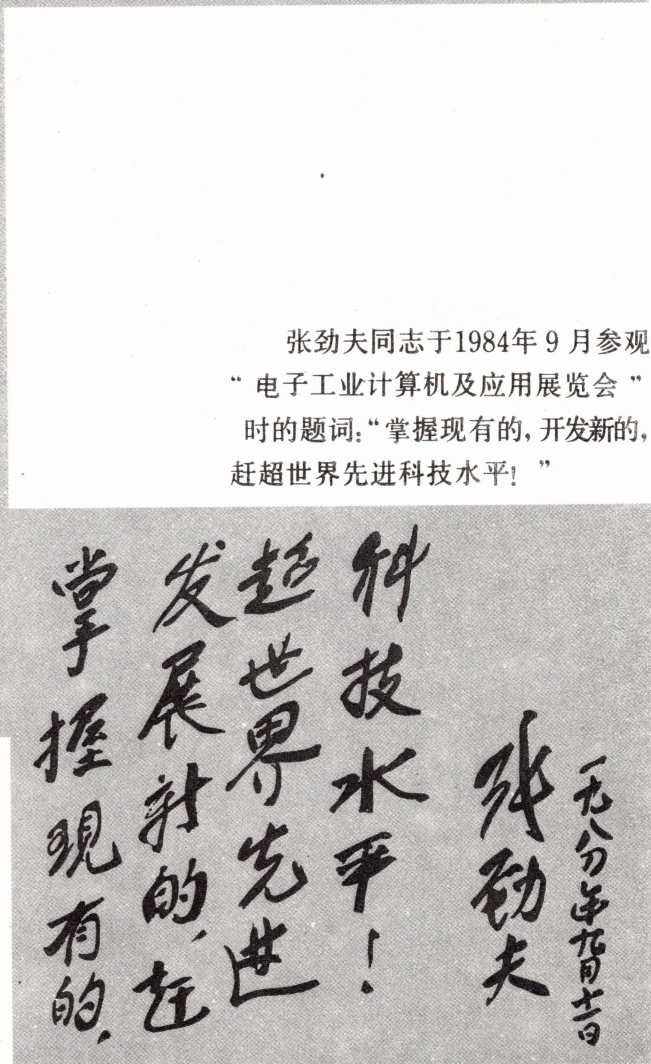 张劲夫同志于1984年9月参观
“电子工业计算机及应用展览会”
时的题词：“掌握现有的，开发新的，
赶超世界先进科技水平！”
掌握现有的，
发展新的，赶
超世界先进
科技水平！
张劲夫
一九八四年九月十一日